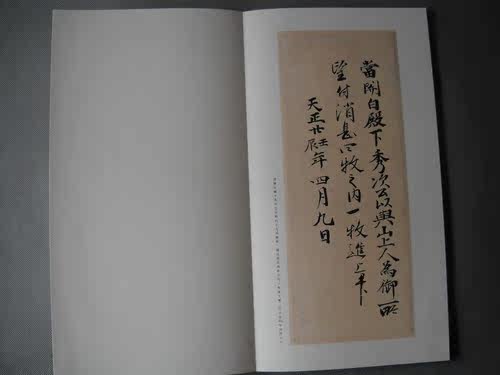 當関白殿下秀次公以興山上人為御所
望付消息四枚之内一枚進上畢
天正廿壬辰年四月九日